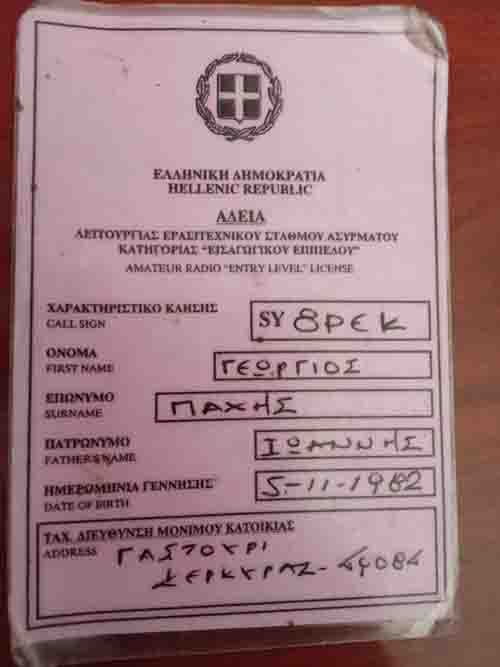 ΕΛΛΗΝΙΚΗ ΔΗΜΟΚΡΑΤΙΑ
HELLENIC REPUBLIC
ΑΔΕΙΑ
ΛΕΙΤΟΥΡΓΙΑΣ ΕΡΑΣΙΤΕΧΝΙΚΟΥ ΣΤΑΘΜΟΥ ΑΣΥΡΜΑΤΟΥ
ΚΑΤΗΓΟΡΙΑΣ "ΕΙΣΑΓΩΓΙΚΟΥ ΕΠΙΠΕΔΟΥ"
AMATEUR RADIO "ENTRY LEVEL" LICENSE
ΧΑΡΑΚΤΗΡΙΣΤΙΚΟ ΚΛΗΣΗΣ
CALL SIGN
SY 8PEK
ΟΝΟΜΑ
FIRST NAME
ΓΕΩΡΓΙΟΣ
ΕΠΩΝΥΜΟ
SURNAME
ΠΑΧΗΣ
ΠΑΤΡΩΝΥΜΟ
FATHERS NAME
ΙΩΑΝΝΗΣ
ΗΜΕΡΟΜΗΝΙΑ ΓΕΝΝΗΣΗΣ
DATE OF BIRTH
5-11-1982
ΤΑΧ. ΔΙΕΥΘΥΝΣΗ ΜΟΝΙΜΟΥ ΚΑΤΟΙΚΙΑΣ
ADDRESS ΓΑΣΤΟΥΡΙ
ΚΕΡΚΥΡΑΣ-49084